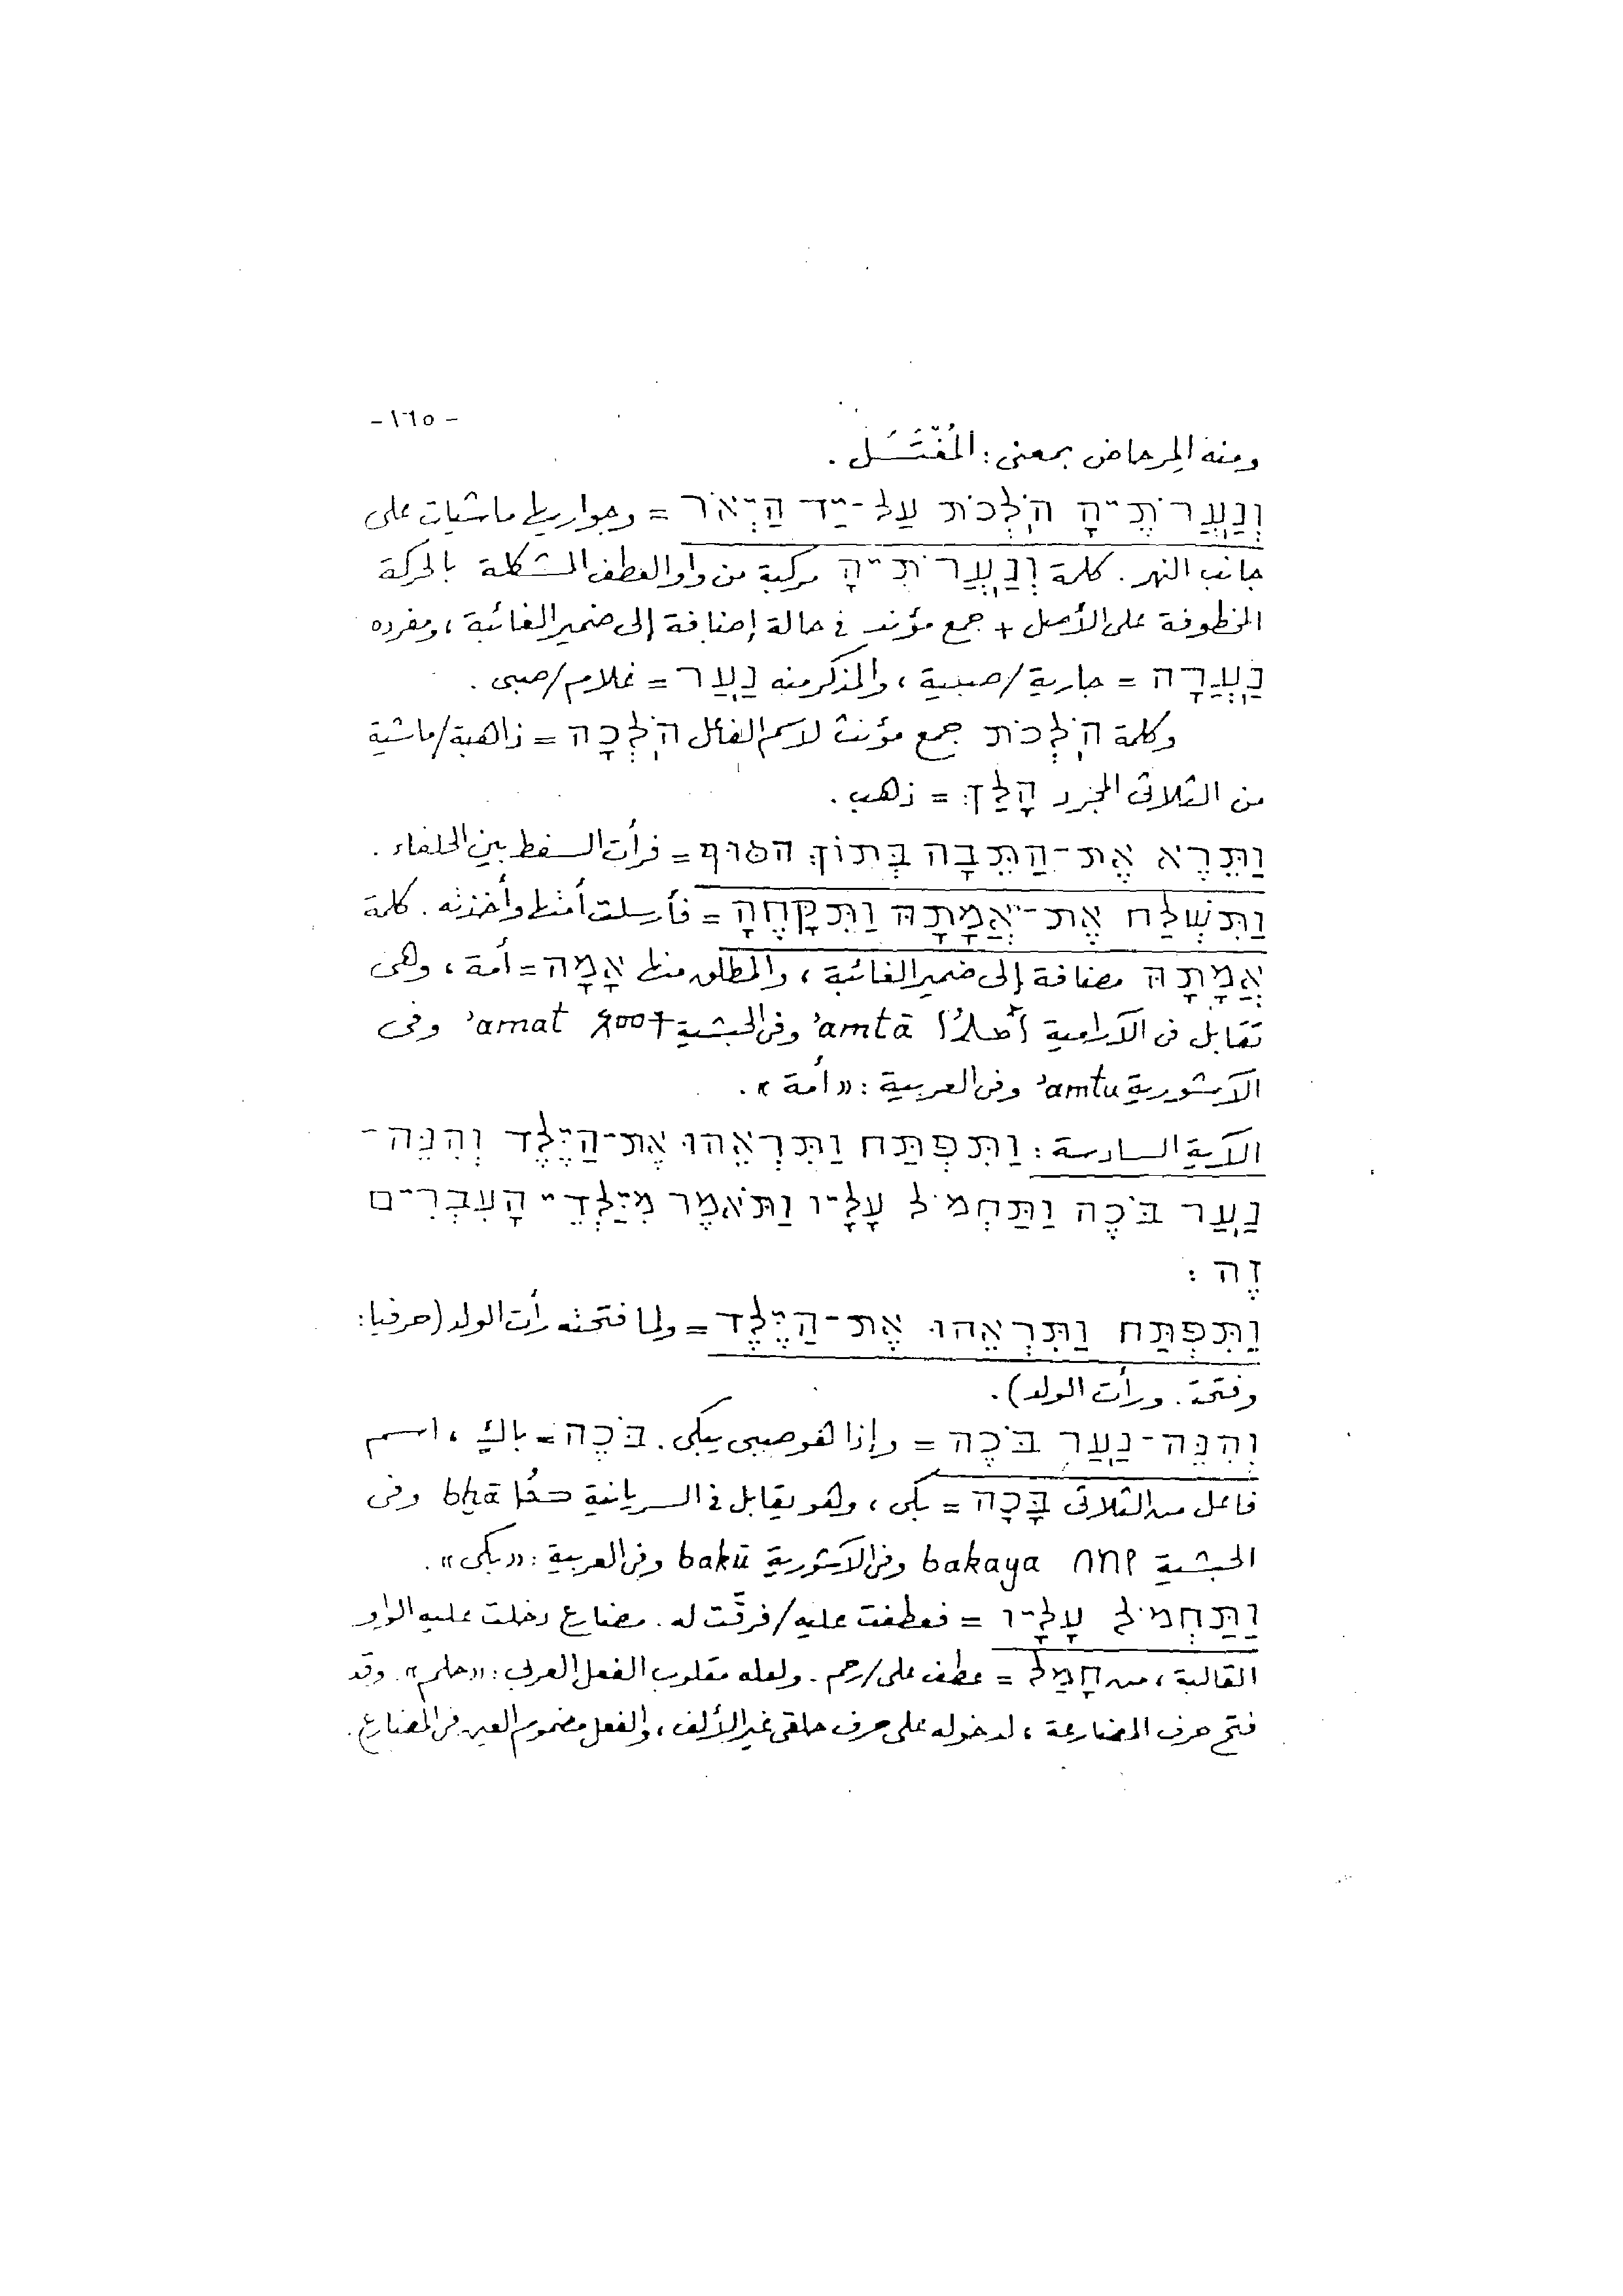 -١٦٥-
ومنه المِرحاض بمعنى: المُغْتَسَل.
וְנַעֲרֹתֶיהָ הֹלְכֹת עַל-יַד הַיְאֹר = وجواريها ماشيات على
جانب النهر. كلمة וְנַעֲרֹתֶיהָ مركبة من واو العطف المشكلة بالحركة
المخطوفة على الأصل + جمع مؤنث في حالة إضافة إلى ضمير الغائبة، ومفرده
נַעֲרָה = جارية/صبية، والمذكر منه נַעַר = غلام/صبى.
وكلمة הֹלְכֹת جمع مؤنث لاسم الفاعل הֹלְכָה = ذاهبة/ماشية
من الثلاثى المجرد הָלַךְ = ذهب.
וַתֵּרֶא אֶת-הַתֵּבָה בְּתוֹךְ הסוּף = فرأت السفط بين الحلفاء.
וַתִּשְׁלַח אֶת-אֲמָתָהּ וַתִּקָּחֶהָ = فأرسلت أمتها وأخذته. كلمة
אֲמָתָהּ مضافة إلى ضمير الغائبة، والمطلق منها אָמָה = أمة، وهى
تقابل فى الآرامية ܐܡܬܐ ʾamtā وفى الحبشية አመት ʾamat وفى
الآشورية ʾamtu وفى العربية: «أمة».
الآية السادسة: וַתִּפְתַּח וַתִּרְאֵהוּ אֶת-הַיֶּלֶד וְהִנֵּה-
נַעַר בֹּכֶה וַתַּחְמֹל עָלָיו וַתֹּאמֶר מִיַּלְדֵי הָעִבְרִים
זֶה:
וַתִּפְתַּח וַתִּרְאֵהוּ אֶת-הַיֶּלֶד = ولما فتحته رأت الولد (حرفيا:
وفتحت. ورأت الولد).
וְהִנֵּה-נַעַר בֹּכֶה = وإذا هو صبى يبكى. בֹּכֶה = باكٍ، اسم
فاعل من الثلاثى בָּכָה = بكى، وهو يقابل في السريانية ܒܟܐ bḫā وفى
الحبشية በከየ bakaya وفى الآشورية bakū وفى العربية: «بكى».
וַתַּחְמֹל עָלָיו = فعطفت عليه/فرقّت له. مضارع دخلت عليه الواو
القالبة، من חָמַל = عطف على/رحم. ولعله مقلوب الفعل العربى: «حلم». وقد
فتح حرف المضارعة، لدخوله على حرف حلقى غير الألف، والفعل مضموم العين فى المضارع.